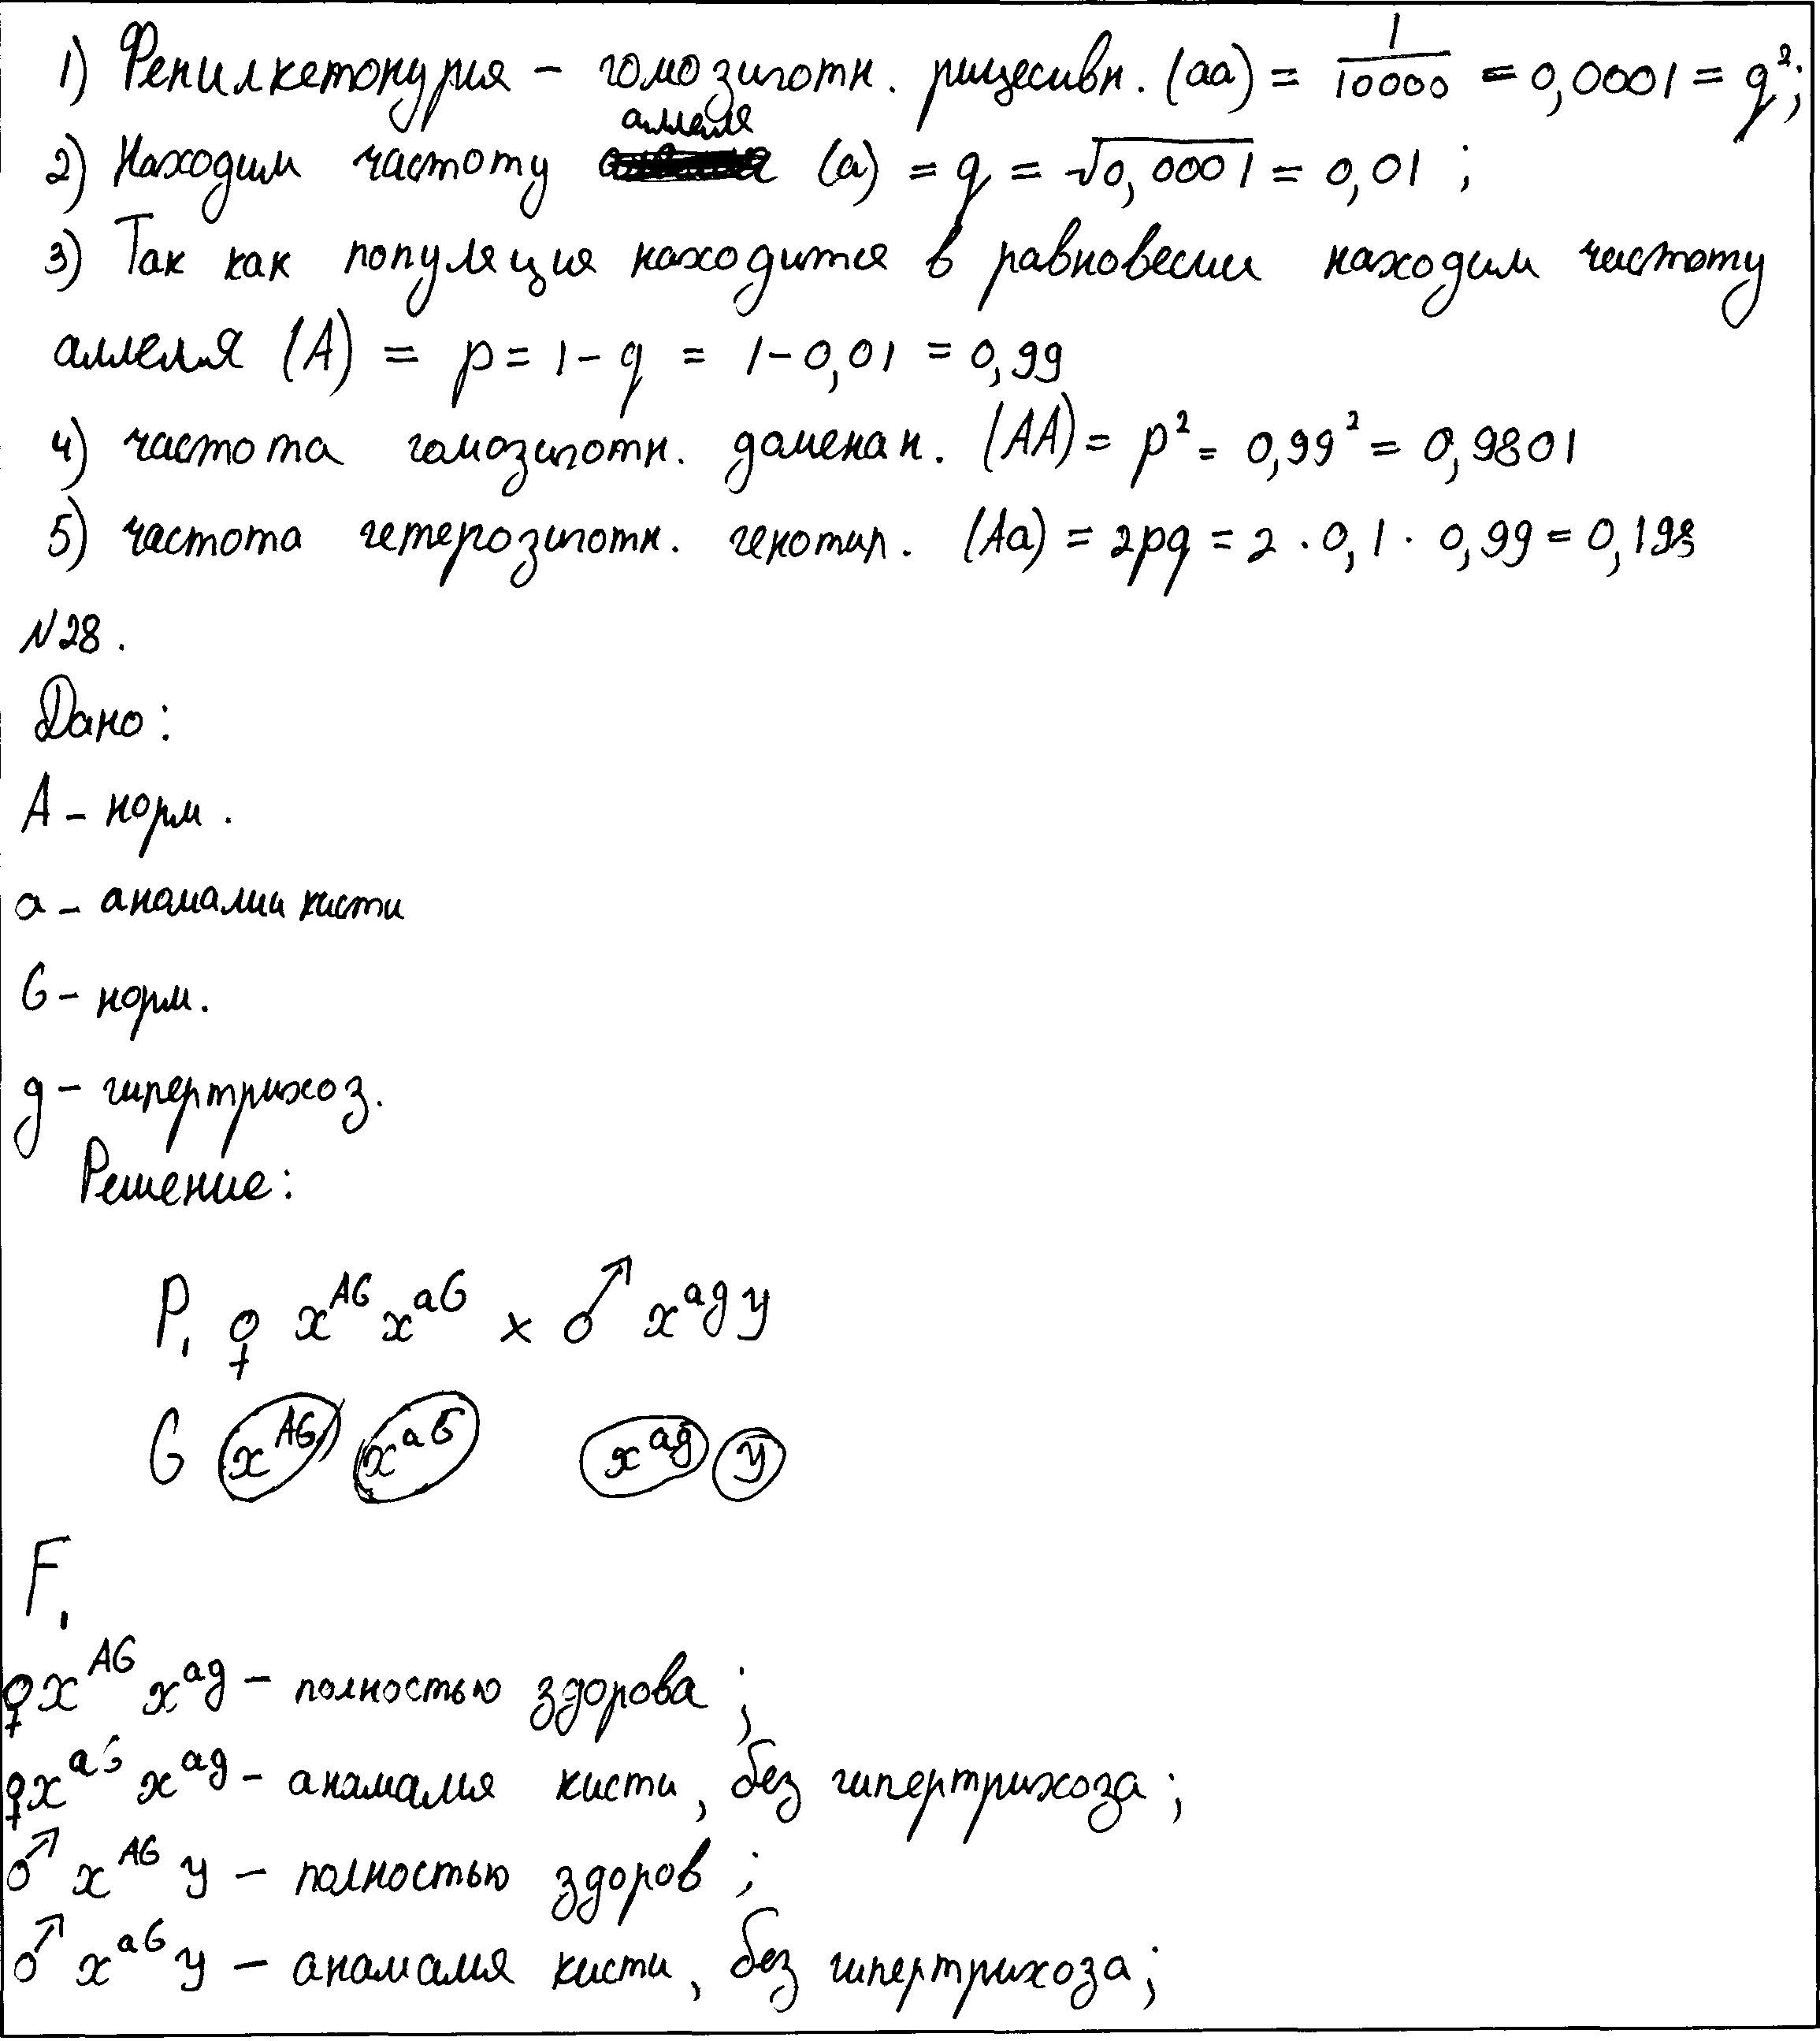 1) Фенилкетонурия – гомозиготн. рицесивн. (aa) = 1/10000 = 0,0001 = q²;
2) Находим частоту аллеля (a) = q = √0,0001 = 0,01 ;
3) Так как популяция находится в равновесии находим частоту
аллеля (A) = p = 1 – q = 1 – 0,01 = 0,99
4) частота гомозиготн. доменан. (AA) = p² = 0,99² = 0,9801
5) частота гетерозиготн. генотип. (Aa) = 2pq = 2 · 0,1 · 0,99 = 0,198
N28.
Дано:
A – норм.
a – анамалии кисти
G – норм.
g – гипертрихоз.
Решение:
P₁ ♀ xᴬᴳ xᵃᴳ × ♂ xᵃᵍ y
G xᴬᴳ xᵃᴳ xᵃᵍ y
F₁
♀ xᴬᴳ xᵃᵍ – полностью здорова ;
♀ xᵃᴳ xᵃᵍ – анамалия кисти, без гипертрихоза ;
♂ xᴬᴳ y – полностью здоров ;
♂ xᵃᴳ y – анамалия кисти, без гипертрихоза ;